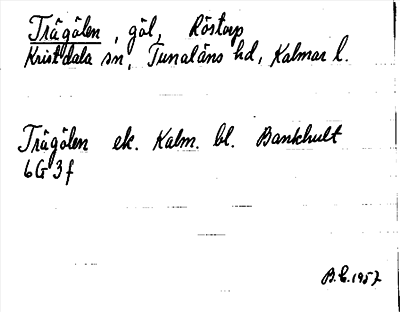 Trägölen, göl, Röstorp
Kristdala sn, Tunaläns hd, Kalmar l.
Trägölen ek. Kalm. bl. Bankhult
6G3f
B.E.1957